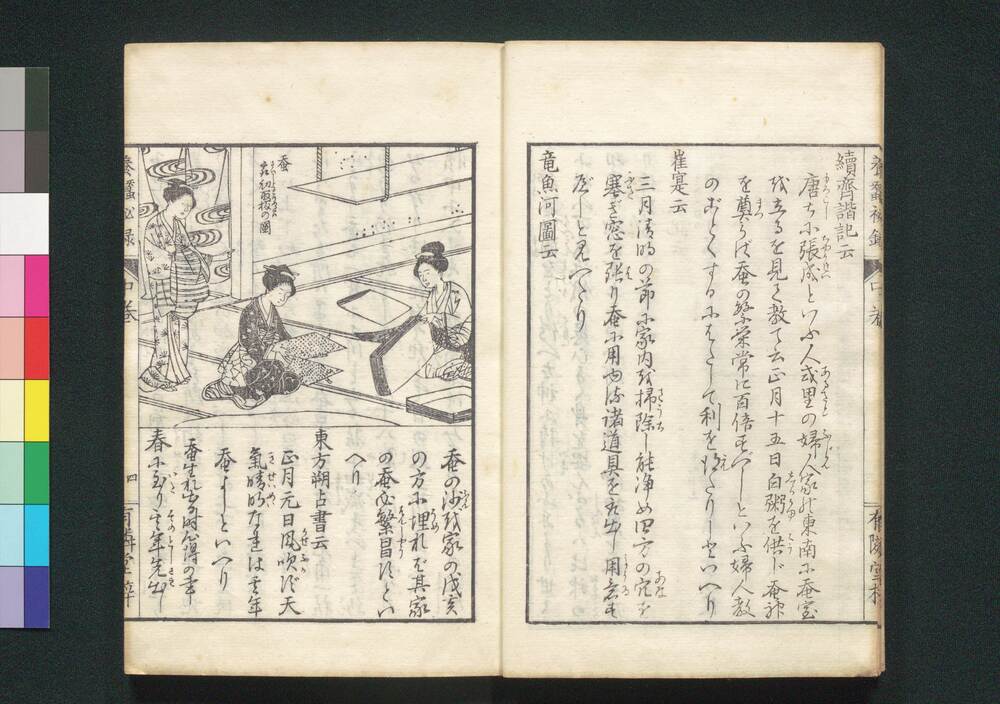 續齊諧記云
唐土に張成といふ人或里の婦人家の東南に蚕室
に立るを見て教て云正月十五日白粥を供じ蚕神
を奠らば蚕の繁栄常に百倍すべしといふ婦人教
のごとくするにはたして利を得たりしといへり
崔寔云
三月清明の節に家内を掃除し能浄め四方の穴を
塞ぎ窓を張り蚕に用ゆる諸道具を出し用意す
べしと見へたり
竜魚河圖云
蚕の沙を家の戌亥
の方に埋れば其家
の蚕必繁昌すとい
へり
東方朔占書云
正月元日風吹ず天
氣晴明なれば其年
蚕よしといへり
蚕生れ出る時心得の事
春に至り其年先出し
蚕
種切取の圖
養蚕秘録
上巻
四